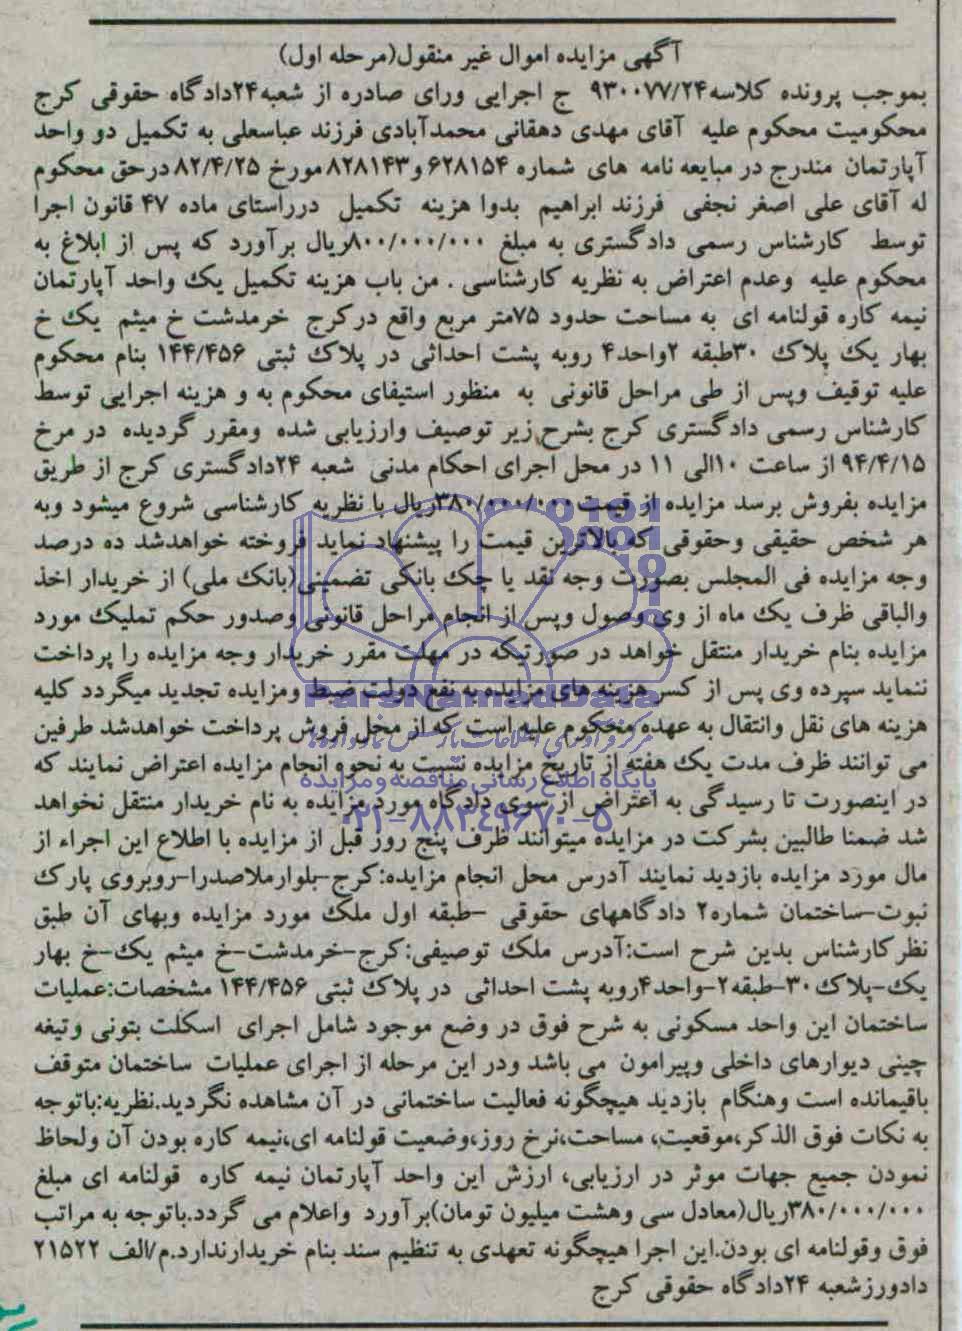 آگهی مزایده اموال غیر منقول(مرحله اول)
بموجب پرونده کلاسه۹۳۰۰۷۷/۲۴ ج اجرایی ورای صادره از شعبه۲۴دادگاه حقوقی کرج
محکومیت محکوم علیه آقای مهدی دهقانی محمدآبادی فرزند عباسعلی به تکمیل دو واحد
آپارتمان مندرج در مبایعه نامه های شماره ۶۲۸۱۵۴ و۸۲۸۱۴۳مورخ ۸۲/۴/۲۵ درحق محکوم
له آقای علی اصغر نجفی فرزند ابراهیم بدوا هزینه تکمیل درراستای ماده ۴۷ قانون اجرا
توسط کارشناس رسمی دادگستری به مبلغ ۸۰۰/۰۰۰/۰۰۰ریال برآورد که پس از ابلاغ به
محکوم علیه وعدم اعتراض به نظریه کارشناسی . من باب هزینه تکمیل یک واحد آپارتمان
نیمه کاره قولنامه ای به مساحت حدود ۷۵متر مربع واقع درکرج خرمدشت خ میثم یک خ
بهار یک پلاک ۳۰طبقه ۲واحد۴ روبه پشت احداثی در پلاک ثبتی ۱۴۴/۴۵۶ بنام محکوم
علیه توقیف وپس از طی مراحل قانونی به منظور استیفای محکوم به و هزینه اجرایی توسط
کارشناس رسمی دادگستری کرج بشرح زیر توصیف وارزیابی شده ومقرر گردیده در مرخ
۹۴/۴/۱۵ از ساعت ۱۰الی ۱۱ در محل اجرای احکام مدنی شعبه ۲۴دادگستری کرج از طریق
مزایده بفروش برسد مزایده از قیمت ۳۸۰/۰۰۰/۰۰۰ریال با نظریه کارشناسی شروع میشود وبه
هر شخص حقیقی وحقوقی که بالاترین قیمت را پیشنهاد نماید فروخته خواهدشد ده درصد
وجه مزایده فی المجلس بصورت وجه نقد یا چک بانکی تضمینی(بانک ملی) از خریدار اخذ
والباقی ظرف یک ماه از وی وصول وپس از انجام مراحل قانونی وصدور حکم تملیک مورد
مزایده بنام خریدار منتقل خواهد در صورتیکه در مهلت مقرر خریدار وجه مزایده را پرداخت
ننماید سپرده وی پس از کسر هزینه های مزایده به نفع دولت ضبط ومزایده تجدید میگردد کلیه
هزینه های نقل وانتقال به عهده محکوم علیه است که از محل فروش پرداخت خواهدشد طرفین
می توانند ظرف مدت یک هفته از تاریخ مزایده نسبت به نحوه انجام مزایده اعتراض نمایند که
در اینصورت تا رسیدگی به اعتراض از سوی دادگاه مورد مزایده به نام خریدار منتقل نخواهد
شد ضمنا طالبین بشرکت در مزایده میتوانند ظرف پنج روز قبل از مزایده با اطلاع این اجراء از
مال مورد مزایده بازدید نمایند آدرس محل انجام مزایده:کرج-بلوارملاصدرا-روبروی پارک
نبوت-ساختمان شماره۲ دادگاههای حقوقی -طبقه اول ملک مورد مزایده وبهای آن طبق
نظرکارشناس بدین شرح است:آدرس ملک توصیفی:کرج-خرمدشت-خ میثم یک-خ بهار
یک-پلاک۳۰-طبقه۲-واحد۴روبه پشت احداثی در پلاک ثبتی ۱۴۴/۴۵۶ مشخصات:عملیات
ساختمان این واحد مسکونی به شرح فوق در وضع موجود شامل اجرای اسکلت بتونی وتیغه
چینی دیوارهای داخلی وپیرامون می باشد ودر این مرحله از اجرای عملیات ساختمان متوقف
باقیمانده است وهنگام بازدید هیچگونه فعالیت ساختمانی در آن مشاهده نگردید.نظریه:باتوجه
به نکات فوق الذکر،موقعیت، مساحت،نرخ روز،وضعیت قولنامه ای،نیمه کاره بودن آن ولحاظ
نمودن جمیع جهات موثر در ارزیابی، ارزش این واحد آپارتمان نیمه کاره قولنامه ای مبلغ
۳۸۰/۰۰۰/۰۰۰ریال(معادل سی وهشت میلیون تومان)برآورد واعلام می گردد.باتوجه به مراتب
فوق وقولنامه ای بودن.این اجرا هیچگونه تعهدی به تنظیم سند بنام خریدارندارد.م/الف ۲۱۵۲۲
دادورزشعبه ۲۴دادگاه حقوقی کرج
ParsNamadData
پایگاه اطلاع رسانی مناقصه و مزایده
۰۲۱-۸۸۳۴۹۶۷۰-۵